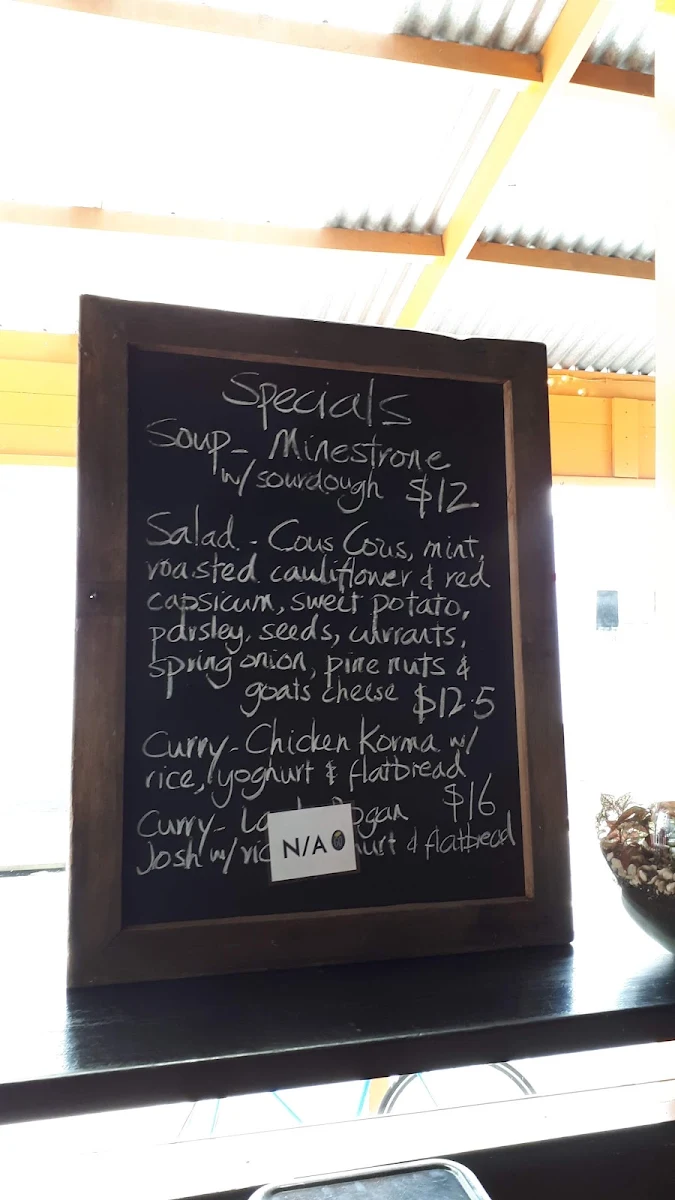 Specials
Soup - Minestrone
w/ sourdough $12
Salad - Cous Cous, mint,
roasted cauliflower & red
capsicum, sweet potato,
parsley, seeds, currants,
spring onion, pine nuts &
goats cheese $12.5
Curry - Chicken Korma w/
rice, yoghurt & flatbread
$16
Curry -
Josh w/ & flatbread
N/A